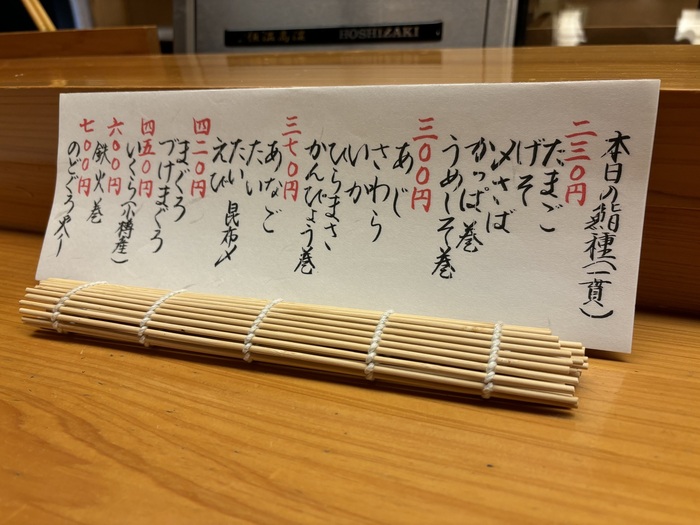 恒温高湿 HOSHIZAKI
本日の鮨種(一貫)
二三〇円
たまご
げそ
〆さば
かっぱ巻
うめしそ巻
三〇〇円
あじ
さわら
いか
ひらまさ
かんぴょう巻
三七〇円
あなご
たい
たい昆布〆
えび
四二〇円
まぐろ
づけまぐろ
四五〇円
いくら(小樽産)
六〇〇円
鉄火巻
七〇〇円
のどぐろ